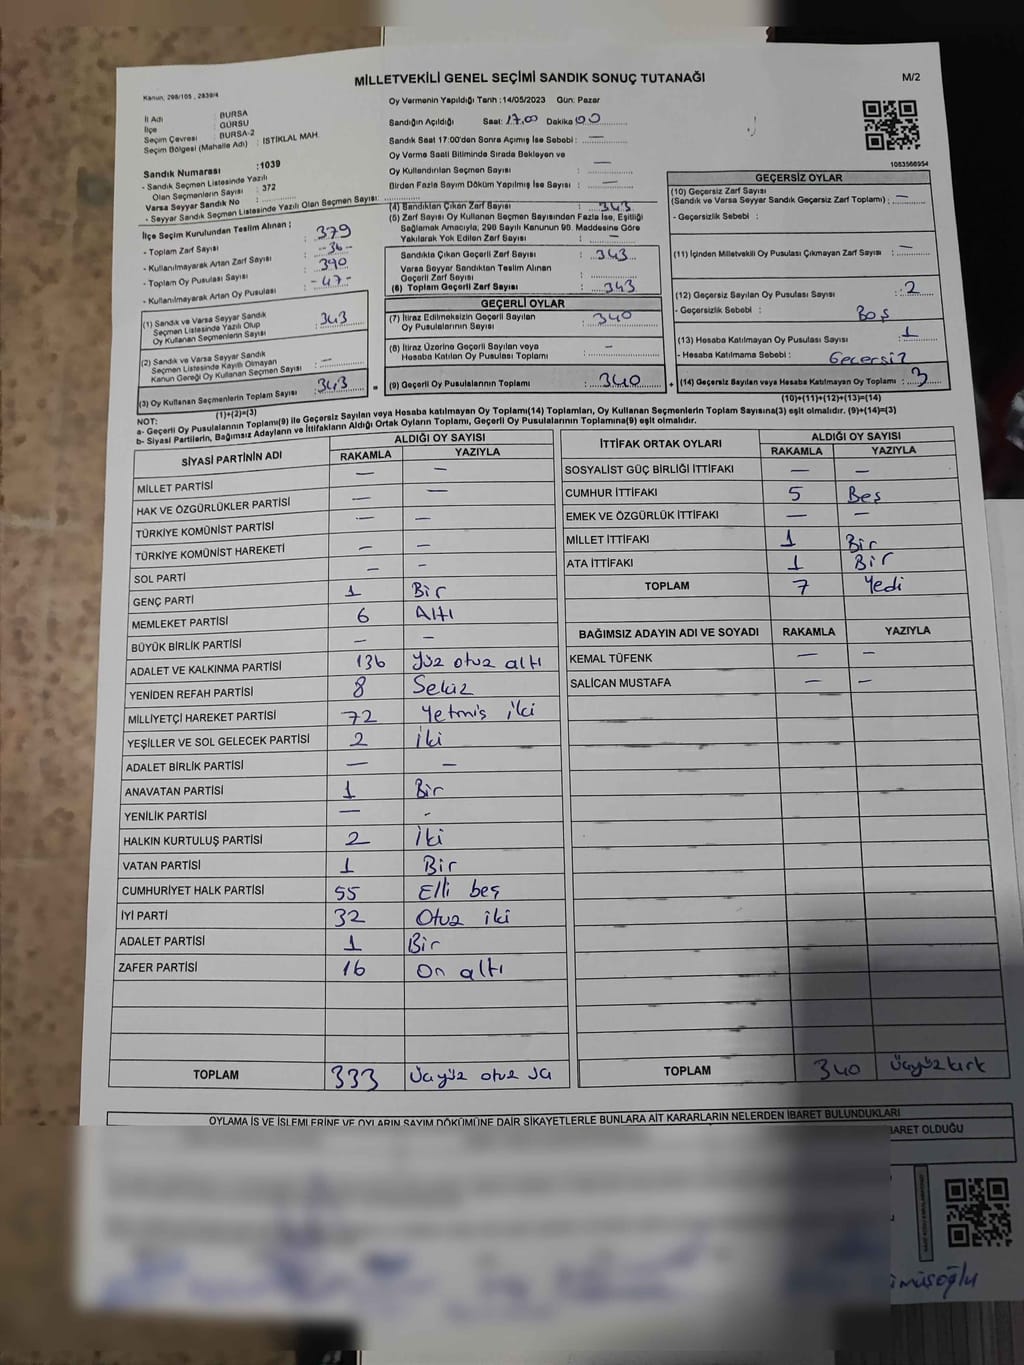 MİLLETVEKİLİ GENEL SEÇİMİ SANDIK SONUÇ TUTANAĞI
M/2
Kanun, 298/105 , 2839/4
Oy Vermenin Yapıldığı Tarih :14/05/2023 Gün: Pazar
İl Adı : BURSA
İlçe : GÜRSU
Seçim Çevresi : BURSA-2
Seçim Bölgesi (Mahalle Adı) : İSTİKLAL MAH.
Sandık Numarası :1039
- Sandık Seçmen Listesinde Yazılı
Olan Seçmenlerin Sayısı : 372
Varsa Seyyar Sandık No :
- Seyyar Sandık Seçmen Listesinde Yazılı Olan Seçmen Sayısı:
Sandığın Açıldığı Saat: 17.00 Dakika 00
Sandık Saat 17:00'dan Sonra Açımış İse Sebebi : —
Oy Verme Saati Bitiminde Sırada Bekleyen ve
Oy Kullandırılan Seçmen Sayısı : —
Birden Fazla Sayım Döküm Yapılmış İse Sayısı : —
1083566954
İlçe Seçim Kurulundan Teslim Alınan ;
- Toplam Zarf Sayısı : 379
- Kullanılmayarak Artan Zarf Sayısı : -36-
- Toplam Oy Pusulası Sayısı : 390
- Kullanılmayarak Artan Oy Pusulası : -47-
(1) Sandık ve Varsa Seyyar Sandık
Seçmen Listesinde Yazılı Olup
Oy Kullanan Seçmenlerin Sayısı : 343
(2) Sandık ve Varsa Seyyar Sandık
Seçmen Listesinde Kayıtlı Olmayan
Kanun Gereği Oy Kullanan Seçmen Sayısı : —
(3) Oy Kullanan Seçmenlerin Toplam Sayısı : 343
(1)+(2)=(3)
(4) Sandıktan Çıkan Zarf Sayısı : 343
(5) Zarf Sayısı Oy Kullanan Seçmen Sayısından Fazla İse, Eşitliği
Sağlamak Amacıyla, 298 Sayılı Kanunun 98. Maddesine Göre
Yakılarak Yok Edilen Zarf Sayısı : —
Sandıkta Çıkan Geçerli Zarf Sayısı : 343
Varsa Seyyar Sandıktan Teslim Alınan
Geçerli Zarf Sayısı :
(6) Toplam Geçerli Zarf Sayısı : 343
GEÇERLİ OYLAR
(7) İtiraz Edilmeksizin Geçerli Sayılan
Oy Pusulalarının Sayısı : 340
(8) İtiraz Üzerine Geçerli Sayılan veya
Hesaba Katılan Oy Pusulası Toplamı : —
= (9) Geçerli Oy Pusulalarının Toplamı : 340
GEÇERSİZ OYLAR
(10) Geçersiz Zarf Sayısı
(Sandık ve Varsa Seyyar Sandık Geçersiz Zarf Toplamı) : —
- Geçersizlik Sebebi :
(11) İçinden Milletvekili Oy Pusulası Çıkmayan Zarf Sayısı : —
(12) Geçersiz Sayılan Oy Pusulası Sayısı : 2
- Geçersizlik Sebebi : Boş
(13) Hesaba Katılmayan Oy Pusulası Sayısı : 1
- Hesaba Katılmama Sebebi : Geçersiz
+ (14) Geçersiz Sayılan veya Hesaba Katılmayan Oy Toplamı : 3
(10)+(11)+(12)+(13)=(14)
NOT:
a- Geçerli Oy Pusulalarının Toplamı(9) ile Geçersiz Sayılan veya Hesaba katılmayan Oy Toplamı(14) Toplamları, Oy Kullanan Seçmenlerin Toplam Sayısına(3) eşit olmalıdır. (9)+(14)=(3)
b- Siyasi Partilerin, Bağımsız Adayların ve İttifakların Aldığı Ortak Oyların Toplamı, Geçerli Oy Pusulalarının Toplamına(9) eşit olmalıdır.
SİYASİ PARTİNİN ADI ALDIĞI OY SAYISI
RAKAMLA YAZIYLA
MİLLET PARTİSİ — —
HAK VE ÖZGÜRLÜKLER PARTİSİ — —
TÜRKİYE KOMÜNİST PARTİSİ — —
TÜRKİYE KOMÜNİST HAREKETİ — —
SOL PARTİ — —
GENÇ PARTİ 1 Bir
MEMLEKET PARTİSİ 6 Altı
BÜYÜK BİRLİK PARTİSİ — —
ADALET VE KALKINMA PARTİSİ 136 Yüz otuz altı
YENİDEN REFAH PARTİSİ 8 Sekiz
MİLLİYETÇİ HAREKET PARTİSİ 72 Yetmiş iki
YEŞİLLER VE SOL GELECEK PARTİSİ 2 İki
ADALET BİRLİK PARTİSİ — —
ANAVATAN PARTİSİ 1 Bir
YENİLİK PARTİSİ — -
HALKIN KURTULUŞ PARTİSİ 2 İki
VATAN PARTİSİ 1 Bir
CUMHURİYET HALK PARTİSİ 55 Elli beş
İYİ PARTİ 32 Otuz iki
ADALET PARTİSİ 1 Bir
ZAFER PARTİSİ 16 On altı
TOPLAM 333 Üçyüz otuz
İTTİFAK ORTAK OYLARI ALDIĞI OY SAYISI
RAKAMLA YAZIYLA
SOSYALİST GÜÇ BİRLİĞİ İTTİFAKI — —
CUMHUR İTTİFAKI 5 Beş
EMEK VE ÖZGÜRLÜK İTTİFAKI — —
MİLLET İTTİFAKI 1 Bir
ATA İTTİFAKI 1 Bir
TOPLAM 7 Yedi
BAĞIMSIZ ADAYIN ADI VE SOYADI RAKAMLA YAZIYLA
KEMAL TÜFENK — —
SALİCAN MUSTAFA — —
TOPLAM 340 Üçyüzkırk
OYLAMA İŞ VE İŞLEMLERİNE VE OYLARIN SAYIM DÖKÜMÜNE DAİR ŞİKAYETLERLE BUNLARA AİT KARARLARIN NELERDEN İBARET BULUNDUKLARI
BARET OLDUĞU